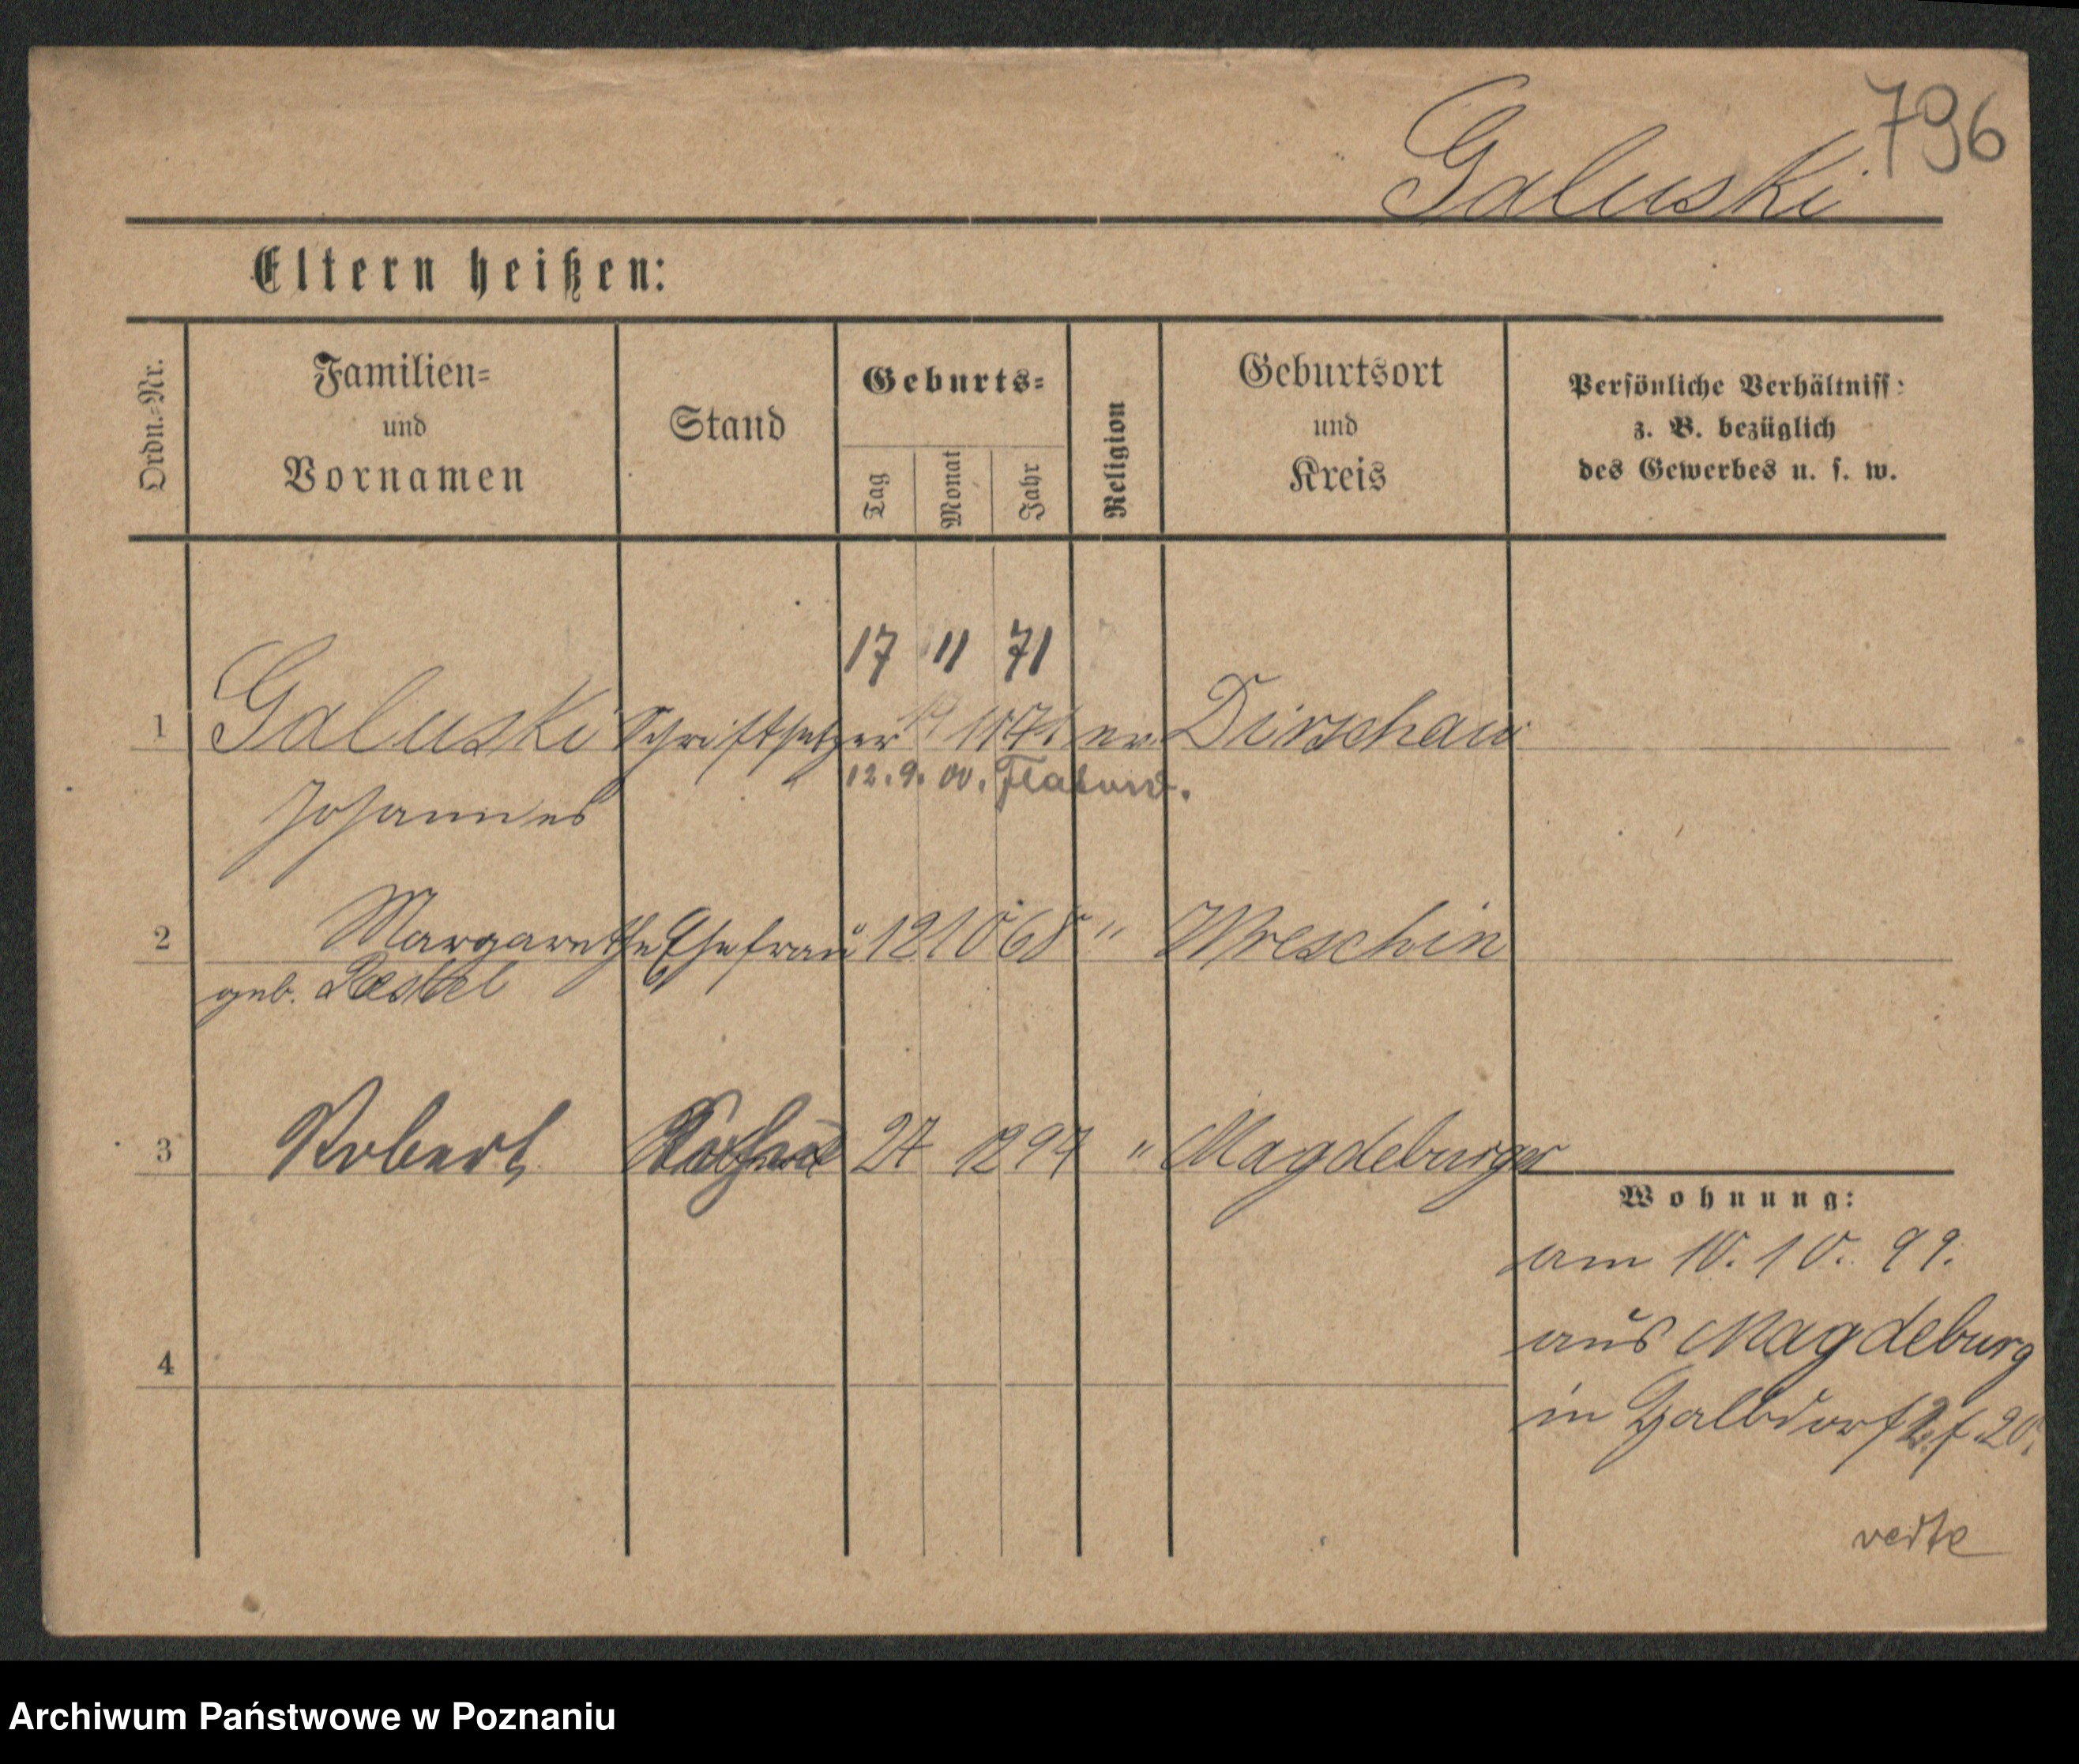 796
Galuski
Eltern heißen:
Ordn.-Nr.
Familien-
und
Vornamen
Stand
Geburts-
Tag
Monat
Jahr
Religion
Geburtsort
und
Kreis
Persönliche Verhältniss:
z. B. bezüglich
des Gewerbes u. s. w.
17 11 71
1 Galuski Schriftsetzer 1871 ev. Dirschau
12. 9. 00.
Johannes
2 Margarethe Ehefrau 12 10 68 " Wreschin
geb.
3 Robert 24 12 94 " Magdeburger
Wohnung:
am 10. 10. 99.
aus Magdeburg
4
in
verte
Archiwum Państwowe w Poznaniu